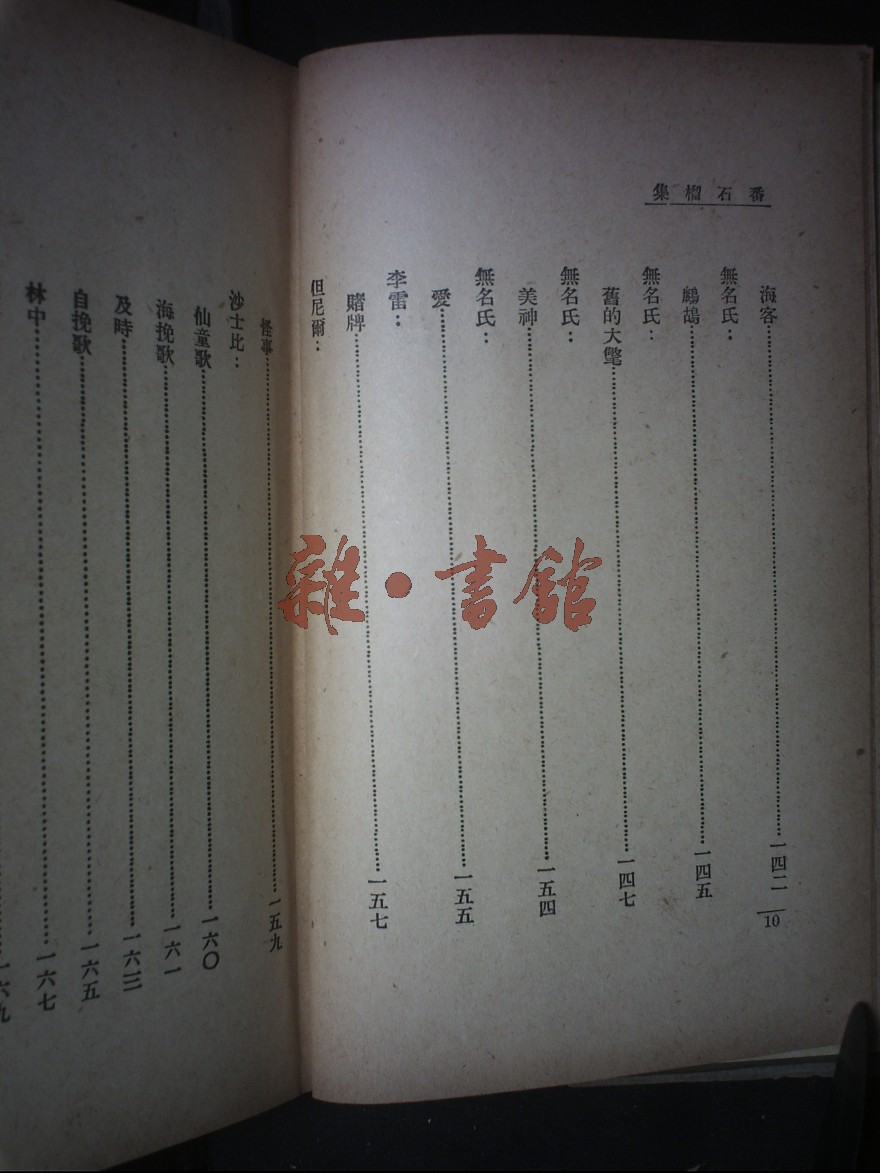 番石榴集
海客……一四二
無名氏：
鷓鴣……一四五
無名氏：
舊的大氅……一四七
無名氏：
美神……一五四
無名氏：
愛……一五五
李雷：
賭牌……一五七
但尼爾：
10
怪事……一五九
沙士比：
仙童歌……一六〇
海挽歌……一六一
及時……一六三
自挽歌……一六五
林中……一六七
一六九
雜·書館